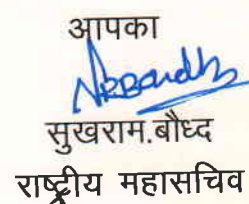 आपका
सुखराम.बौध्द
राष्ट्रीय महासचिव